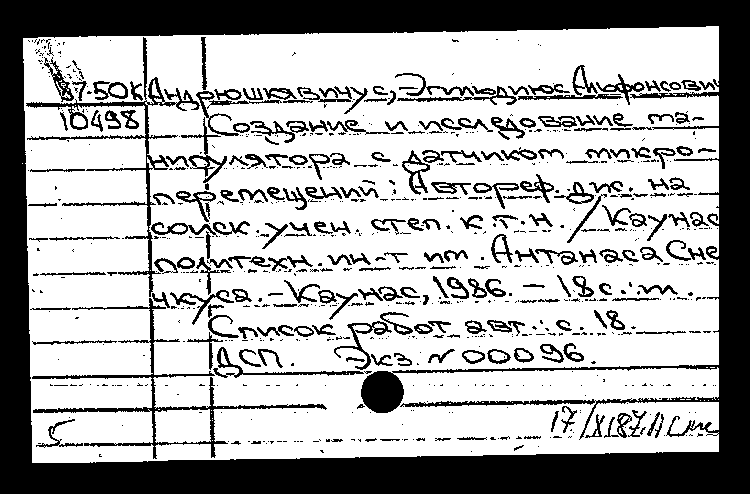 87-50К Андрюшкявичус, Эгмидиюс Альфонсович
10498 Создание и исследование ма-
нипулятора с датчиком микро-
перемещений: Автореф. дис. на
соиск. учен. степ. к.т.н. / Каунас
политехн. ин-т им. Антанаса Сне
чкуса. - Каунас, 1986. - 18 с.: ил.
Список работ авт.: с. 18.
ДСП. Экз N 00096.
5 17/XI87.